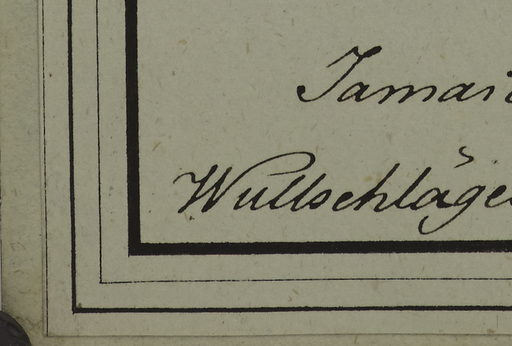 Jamai
Wullschläge